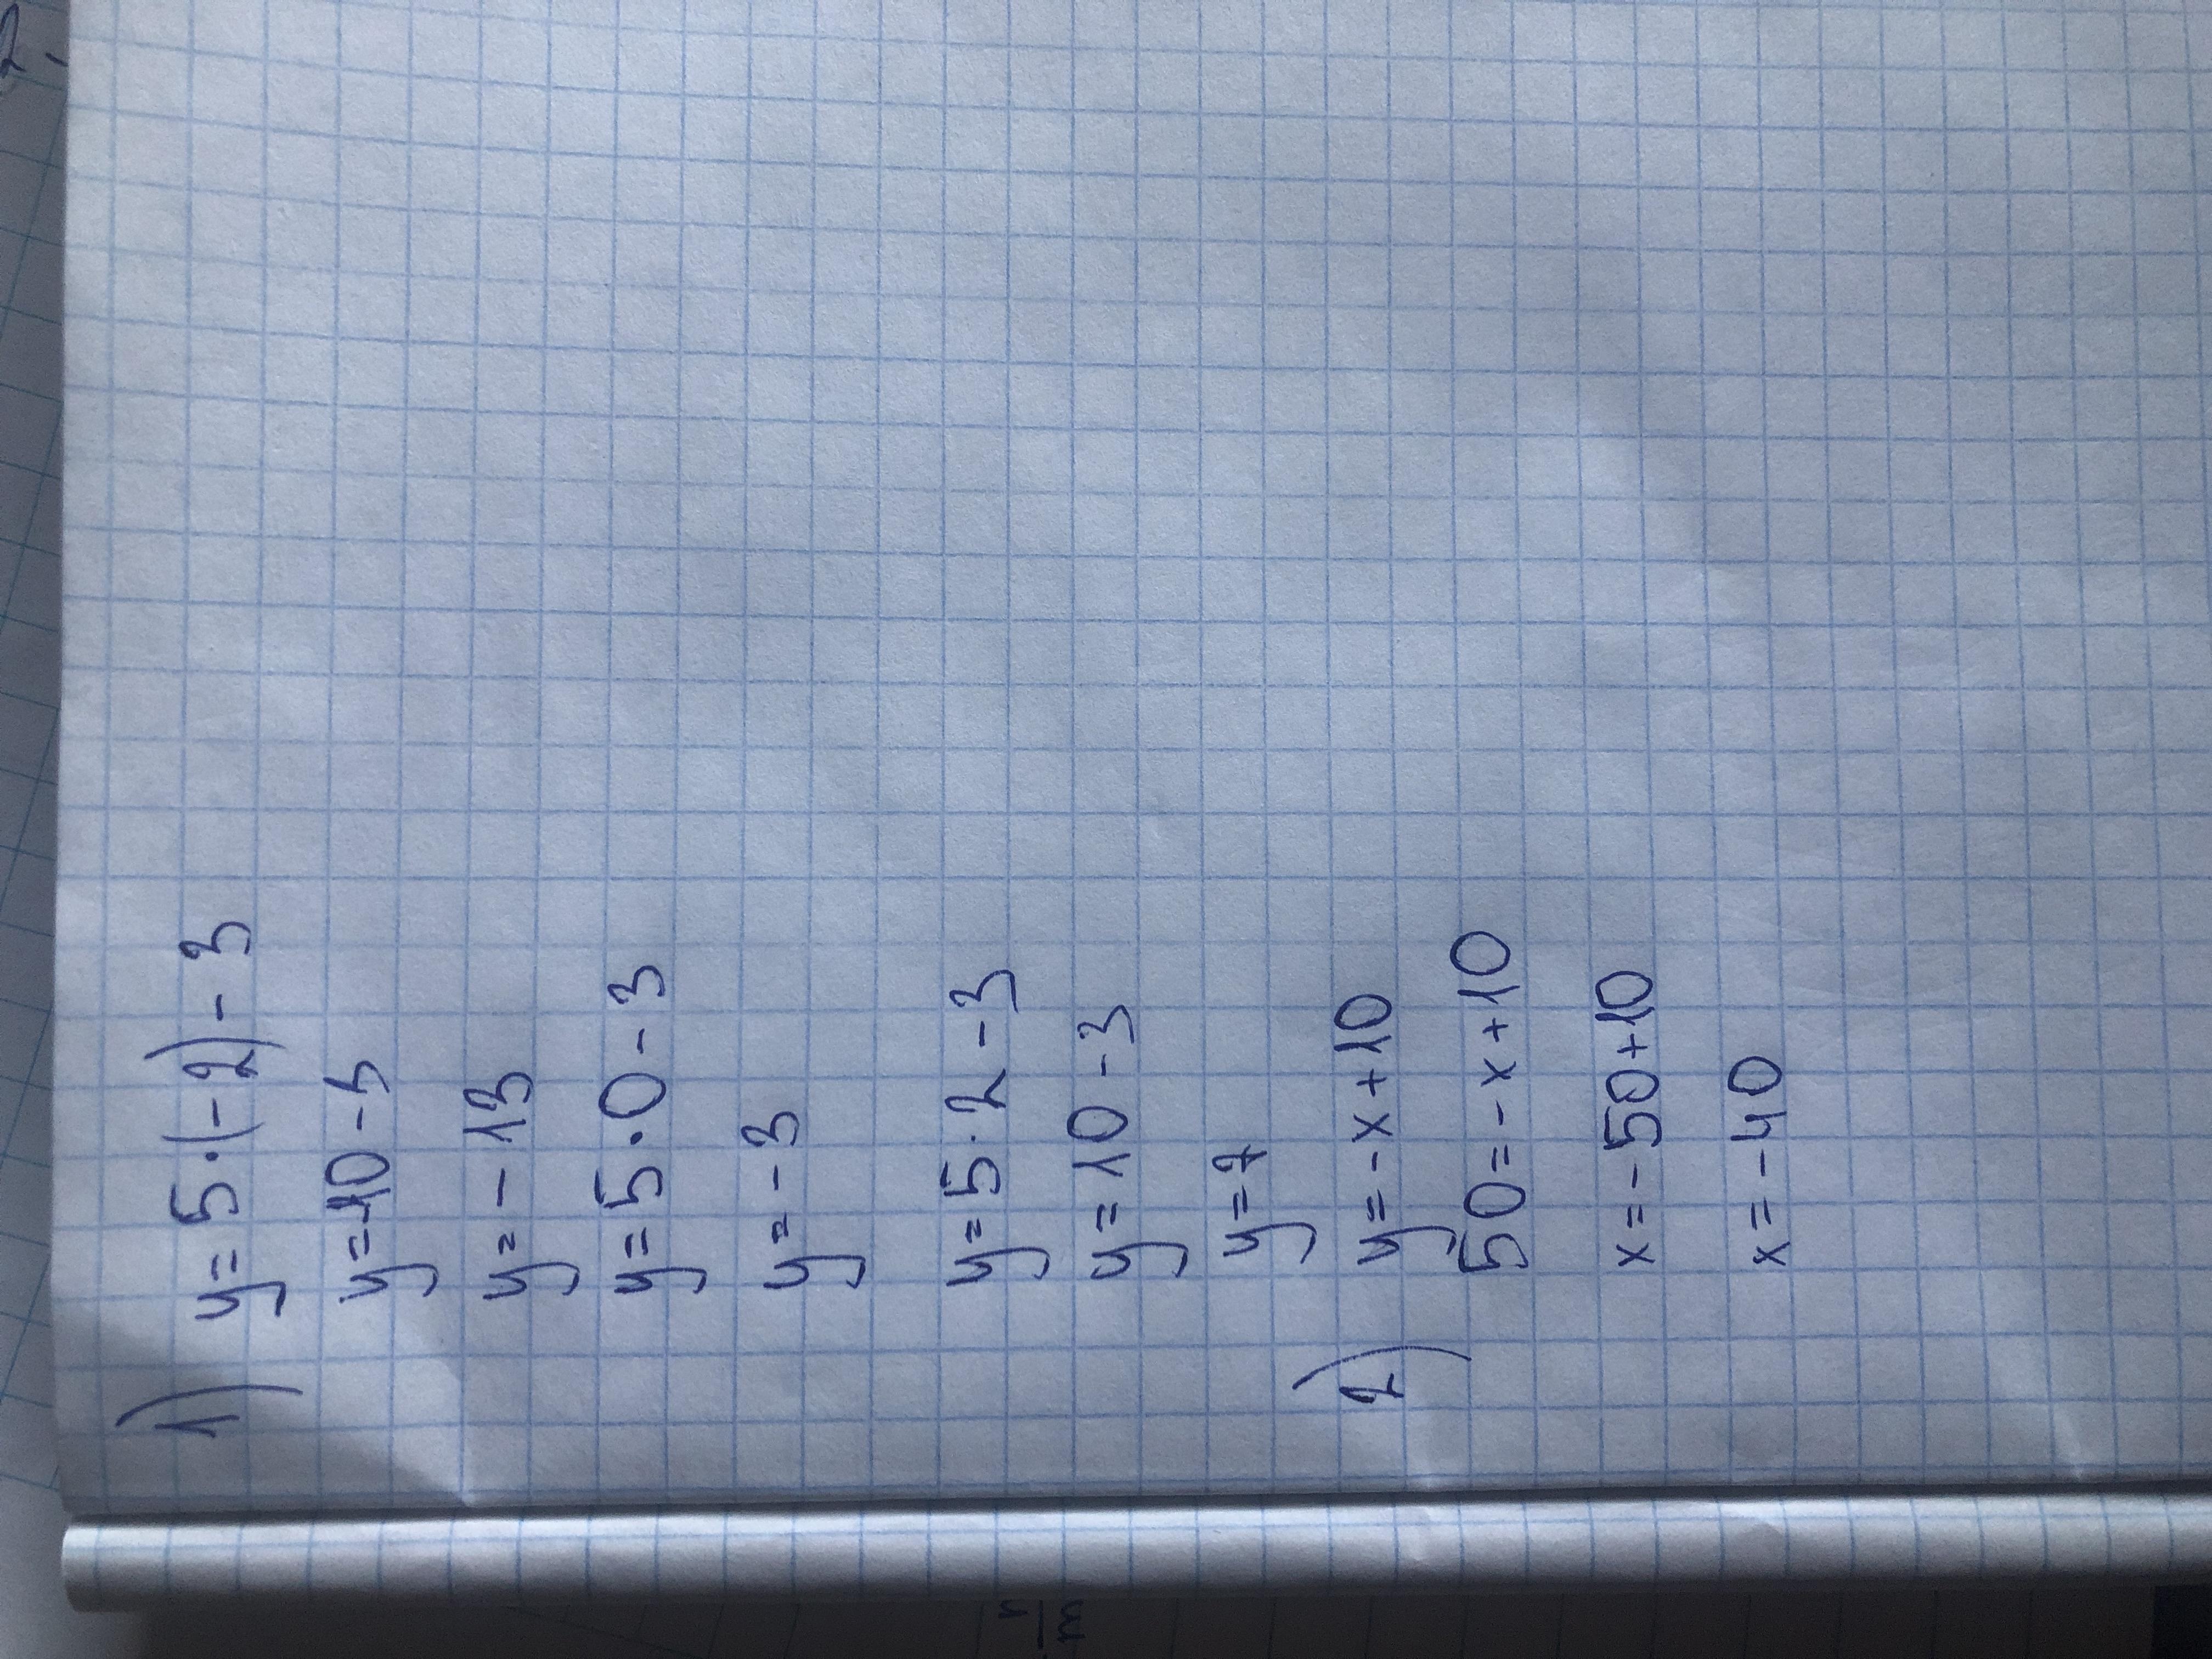 1) y = 5 · (-2) - 3
y = -10 - 3
y = - 13
y = 5 · 0 - 3
y = - 3
y = 5 · 2 - 3
y = 10 - 3
y = 7
2) y = - x + 10
50 = - x + 10
x = - 50 + 10
x = - 40